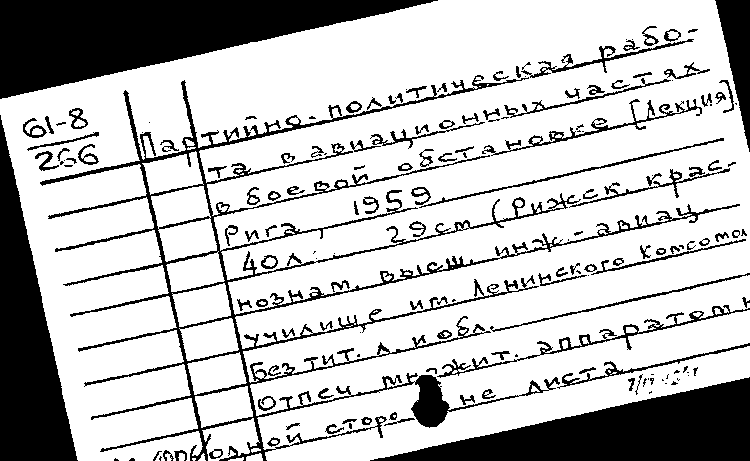 61-8
266
Партийно-политическая рабо-
та в авиационных частях
в боевой обстановке [Лекция]
Рига, 1959.
40л. 29см (Рижск. крас-
нознам. высш. инж.-авиац.
училище им. Ленинского Комсомо
Без тит. л. и обл.
Отпеч. множит. аппаратом н
одной сторо не листа.